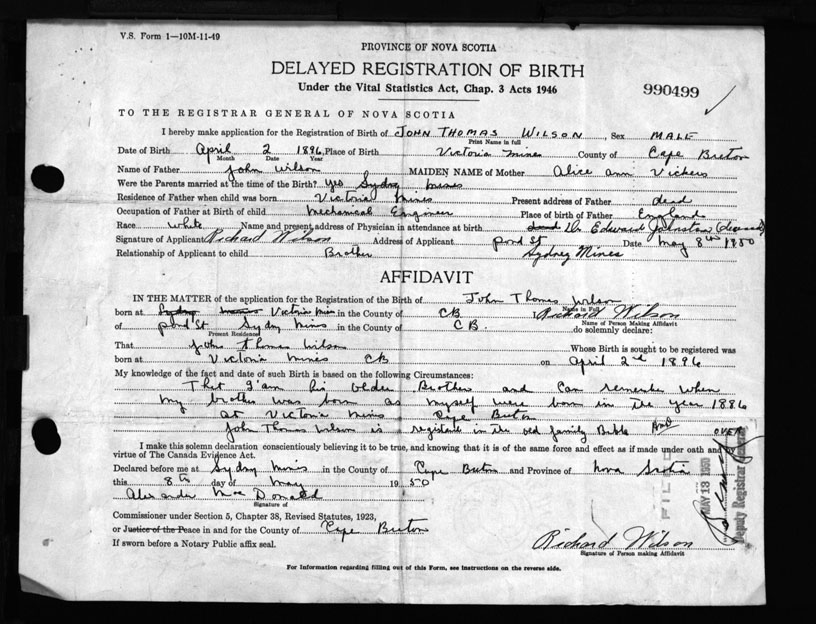 V.S. Form 1—10M-11-49
PROVINCE OF NOVA SCOTIA
DELAYED REGISTRATION OF BIRTH
Under the Vital Statistics Act, Chap. 3 Acts 1946
990499
TO THE REGISTRAR GENERAL OF NOVA SCOTIA
I hereby make application for the Registration of Birth of JOHN THOMAS WILSON, Sex MALE
Print Name in full
Date of Birth April 2 1896, Place of Birth Victoria Mines County of Cape Breton
Month Date Year
Name of Father John Wilson MAIDEN NAME of Mother Alice Ann Vickers
Were the Parents married at the time of the Birth? yes Sydney Mines
Residence of Father when child was born Victoria Mines Present address of Father dead
Occupation of Father at Birth of child Mechanical Engineer Place of birth of Father England
Race White Name and present address of Physician in attendance at birth Dr Edward Johnston (deceased)
Signature of Applicant Richard Wilson Address of Applicant pond St Date May 8th 1950
Relationship of Applicant to child Brother Sydney Mines
AFFIDAVIT
IN THE MATTER of the application for the Registration of the Birth of John Thomas Wilson
Name in Full
born at Sydney Mines Victoria Mines in the County of CB I, Richard Wilson
Name of Person Making Affidavit
of pond St Sydny Mines in the County of CB. do solemnly declare:
Present Residence
That John Thomas Wilson Whose Birth is sought to be registered was
born at Victoria Mines CB on April 2nd 1896
My knowledge of the fact and date of such Birth is based on the following Circumstances:
That I'am his older Brother and Can remember when
my brother was born as myself were born in the year 1886
at Victoria Mines Cape Breton
John Thomas Wilson is registered in the old family Bible And OVER
I make this solemn declaration conscientiously believing it to be true, and knowing that it is of the same force and effect as if made under oath and
virtue of The Canada Evidence Act.
Declared before me at Sydny Mines in the County of Cape Breton and Province of Nova Scotia
this 8th day of May 1950
Alexander MacDonald
Signature of
Commissioner under Section 5, Chapter 38, Revised Statutes, 1923,
or Justice of the Peace in and for the County of Cape Breton
If sworn before a Notary Public affix seal.
Richard Wilson
Signature of Person making Affidavit
FILED
MAY 13 1950
Deputy Registrar
For Information regarding filling out of this Form, see instructions on the reverse side.